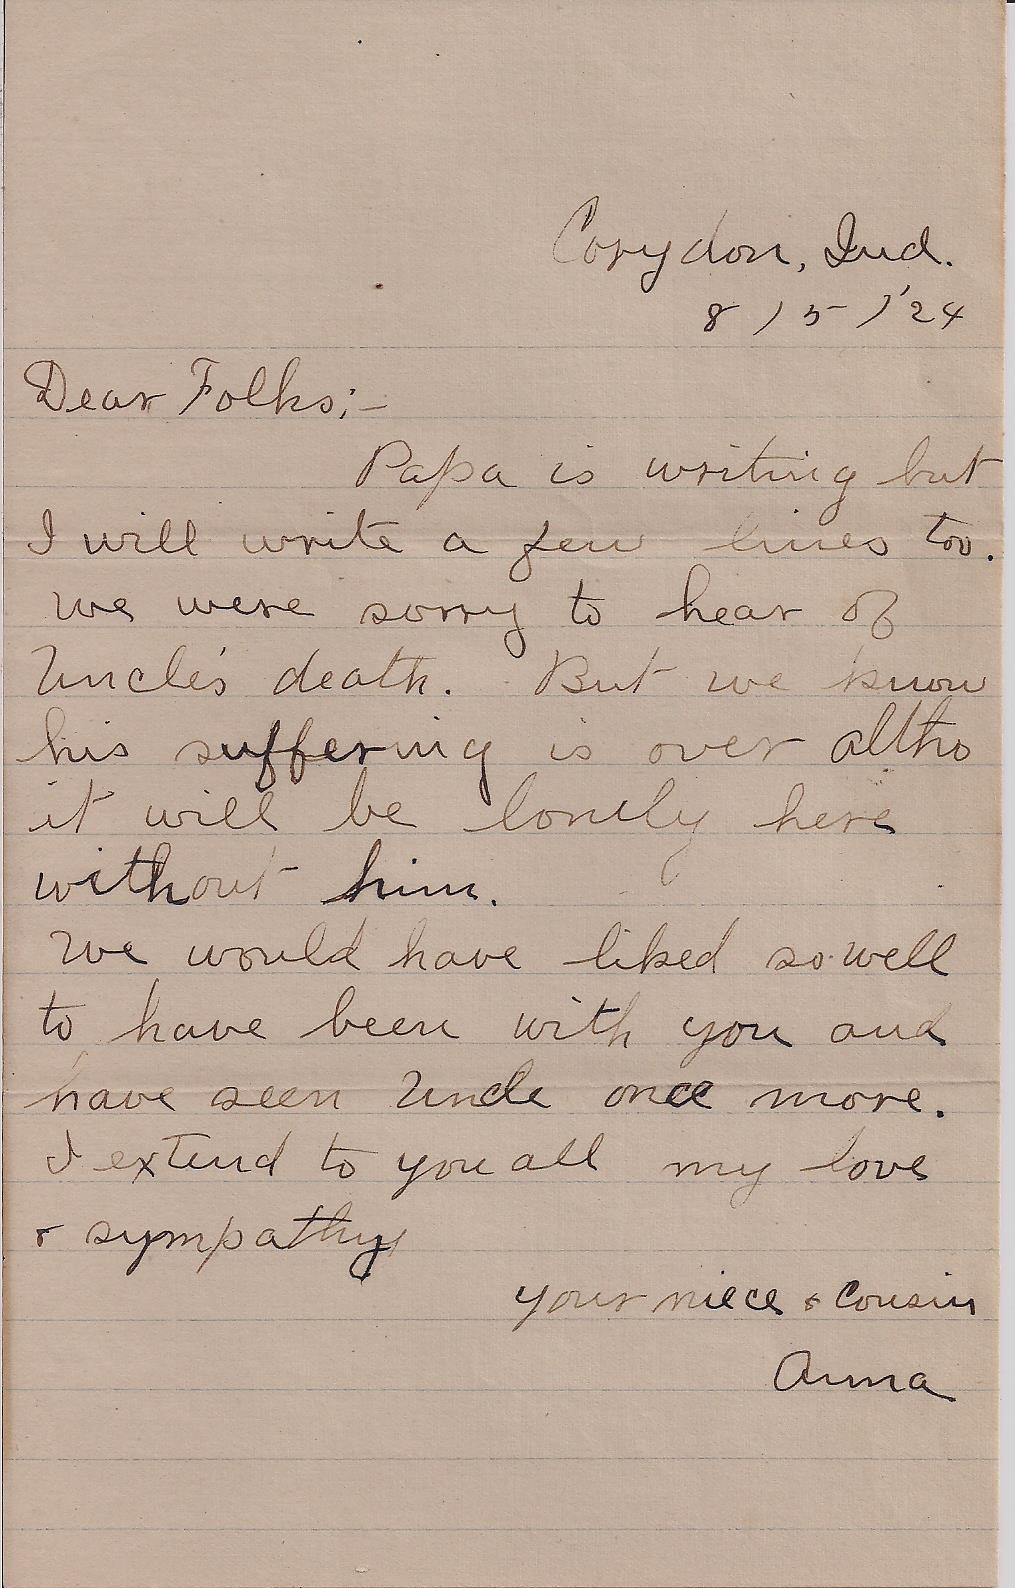 Corydon, Ind.
8/5/'24
Dear Folks;-
Papa is writing but
I will write a few lines too.
We were sorry to hear of
Uncle's death. But we know
his suffering is over altho
it will be lonely here
without him.
We would have liked so well
to have been with you and
have seen Uncle once more.
I extend to you all my love
& sympathy
your niece & Cousin
Anna